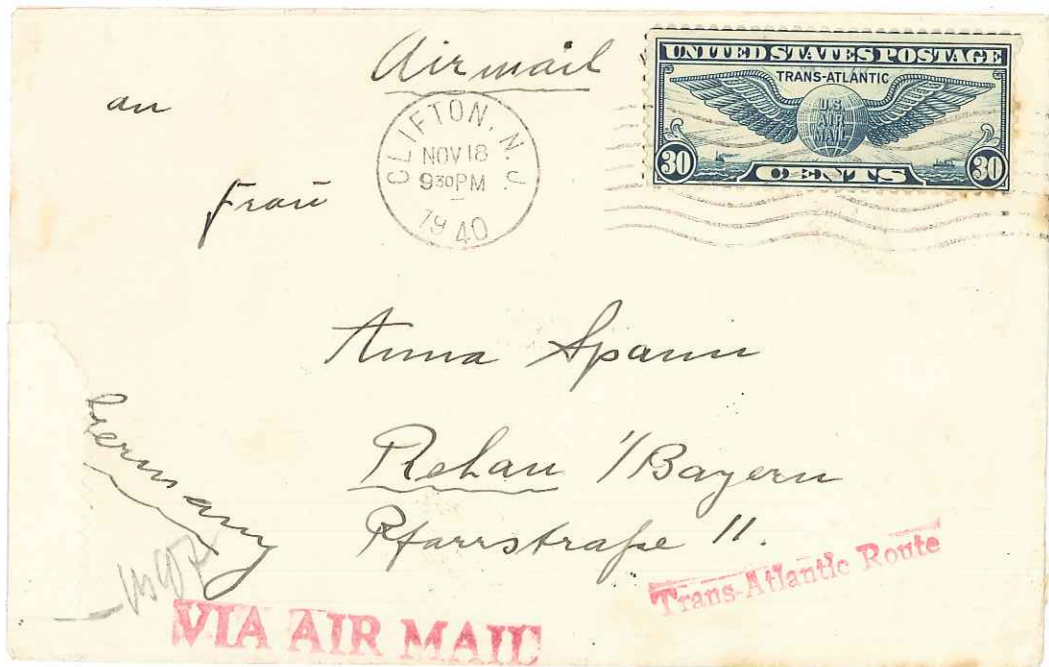 Airmail
an
Frau
CLIFTON, N.J.
NOV 18
930PM
1940
UNITED STATES POSTAGE
TRANS-ATLANTIC
U.S.
AIR
MAIL
30 CENTS 30
Anna Spann
Rehau i/Bayern
Pfarrstraße 11.
Germany
Trans-Atlantic Route
VIA AIR MAIL